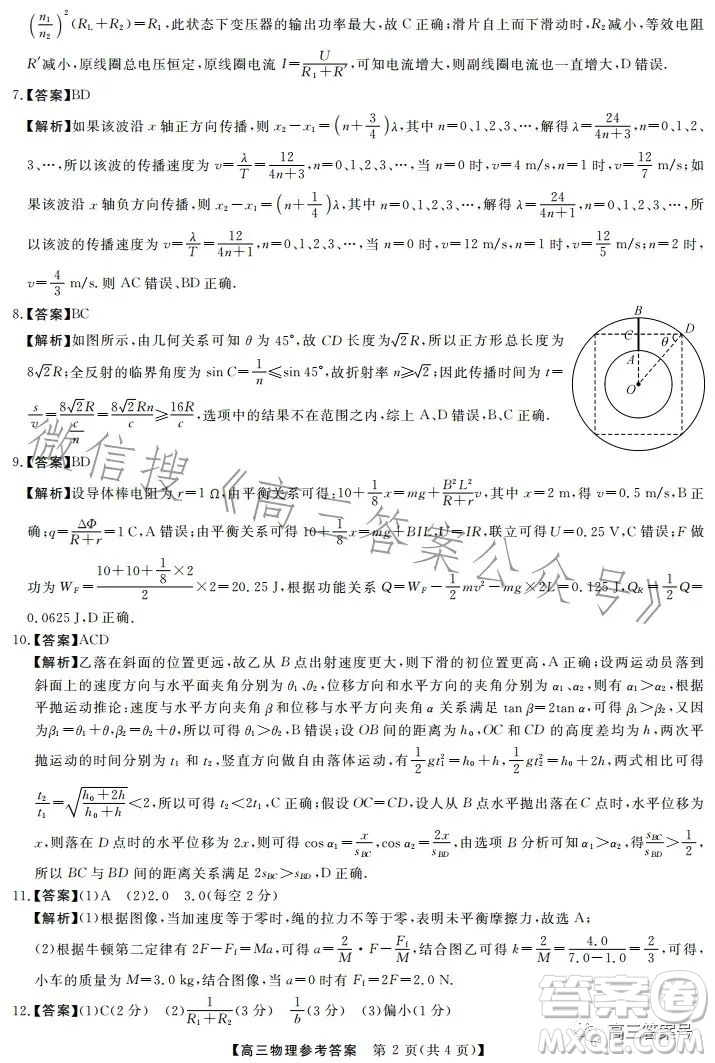 (n₁/n₂)²(R_L+R₂)=R₁,此状态下变压器的输出功率最大,故 C 正确;滑片自上而下滑动时,R₂减小,等效电阻
R′减小,原线圈总电压恒定,原线圈电流 I=U/(R₁+R′),可知电流增大,则副线圈电流也一直增大,D 错误.
7.【答案】BD
【解析】如果该波沿 x 轴正方向传播,则 x₂−x₁=(n+3/4)λ,其中 n=0、1、2、3、…,解得 λ=24/(4n+3),n=0、1、2、
3、…,所以该波的传播速度为 v=λ/T=12/(4n+3),n=0、1、2、3、…,当 n=0 时,v=4 m/s,n=1 时,v=12/7 m/s;如
果该波沿 x 轴负方向传播,则 x₂−x₁=(n+1/4)λ,其中 n=0、1、2、3、…,解得 λ=24/(4n+1),n=0、1、2、3、…,所
以该波的传播速度为 v=λ/T=12/(4n+1),n=0、1、2、3、…,当 n=0 时,v=12 m/s,n=1 时,v=12/5 m/s;n=2 时,
v=4/3 m/s.则 AC 错误、BD 正确.
8.【答案】BC
【解析】如图所示,由几何关系可知 θ 为 45°,故 CD 长度为√2R,所以正方形总长度为
8√2R;全反射的临界角度为 sin C=1/n≤sin 45°,故折射率 n≥√2;因此传播时间为 t=
s/v=8√2R/(c/n)=8√2Rn/c≥16R/c,选项中的结果不在范围之内,综上 A、D 错误、B、C 正确.
B
C
D
θ
A
O
9.【答案】BD
【解析】设导体棒电阻为 r=1 Ω,由平衡关系可得:10+1/8x=mg+B²L²/(R+r)v,其中 x=2 m,得 v=0.5 m/s,B 正
确;q=ΔΦ/(R+r)=1 C,A 错误;由平衡关系可得 10+1/8x=mg+BIL,U=IR,联立可得 U=0.25 V,C 错误;F 做
功为 W_F=(10+10+1/8×2)/2×2=20.25 J,根据功能关系 Q=W_F−1/2mv²−mgL=0.125 J,Q_R=1/2Q=
0.0625 J,D 正确.
10.【答案】ACD
【解析】乙落在斜面的位置更远,故乙从 B 点出射速度更大,则下滑的初位置更高,A 正确;设两运动员落到
斜面上的速度方向与水平面夹角分别为 θ₁、θ₂,位移方向和水平方向的夹角分别为 α₁、α₂,则有 α₁>α₂,根据
平抛运动推论:速度与水平方向夹角 β 和位移与水平方向夹角 α 关系满足 tan β=2tan α,可得 β₁>β₂,又因
为β₁=θ₁+θ,β₂=θ₂+θ,所以可得 θ₁>θ₂,B 错误;设 OB 间的距离为 h₀,OC 和 CD 的高度差均为 h,两次平
抛运动的时间分别为 t₁ 和 t₂,竖直方向做自由落体运动,有 1/2gt₁²=h₀+h,1/2gt₂²=h₀+2h,两式相比可得
t₂/t₁=√((h₀+2h)/(h₀+h))<2,所以可得 t₂<2t₁,C 正确;假设 OC=CD,从 B 点水平抛出后落在 C 点时,水平位移为
x,则落在 D 点时的水平位移为 2x,则可得 cos α₁=x/s_BC,cos α₂=2x/s_BD,由选项 B 分析可知 α₁>α₂,可得 s_BC/s_BD>1/2,
所以 BC 与 BD 间的距离关系满足 2s_BC>s_BD,D 正确.
11.【答案】(1)A (2)2.0 3.0(每空 2 分)
【解析】(1)根据图像,当加速度等于零时,绳的拉力不等于零,表明未平衡摩擦力,故选 A;
(2)根据牛顿第二定律有 2F−F_f=Ma,可得 a=2/M·F−F_f/M,结合图乙可得 k=2/M=4.0/(7.0−1.0)=2/3,可得,
小车的质量为 M=3.0 kg,结合图像,当 a=0 时有 F_f=2F=2.0 N.
12.【答案】(1)C(2 分) (2)1/(R₁+R₂)(3 分) 1/b(3 分) (3)偏小(1 分)
【高三物理参考答案 第 2 页(共 4 页)】
微信搜《高三答案公众号》
答案卷
高三答案号